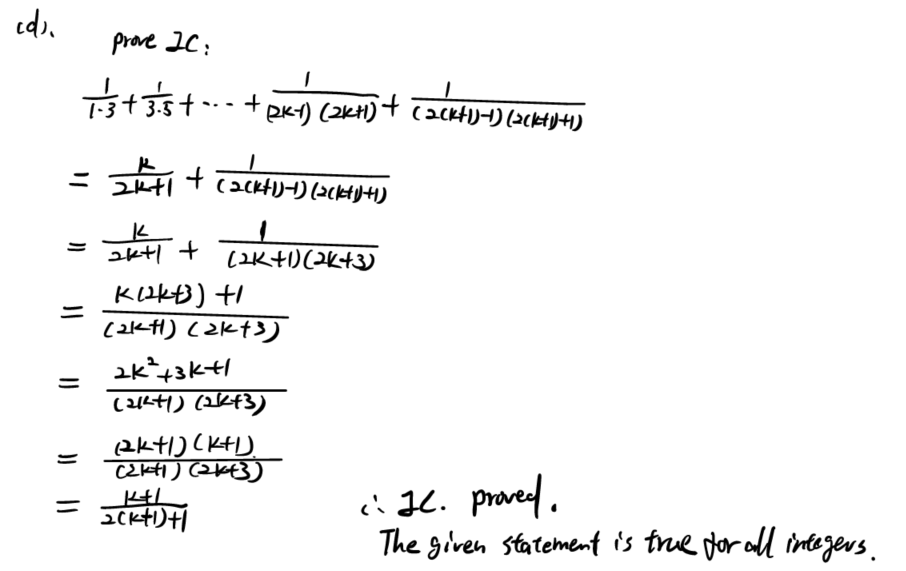 (d).
prove IC:
1/(1·3) + 1/(3·5) + ··· + 1/((2k-1)(2k+1)) + 1/((2(k+1)-1)(2(k+1)+1))
= k/(2k+1) + 1/((2(k+1)-1)(2(k+1)+1))
= k/(2k+1) + 1/((2k+1)(2k+3))
= (k(2k+3)+1)/((2k+1)(2k+3))
= (2k²+3k+1)/((2k+1)(2k+3))
= ((2k+1)(k+1))/((2k+1)(2k+3))
= (k+1)/(2(k+1)+1)
∴ IC. proved.
The given statement is true for all integers.